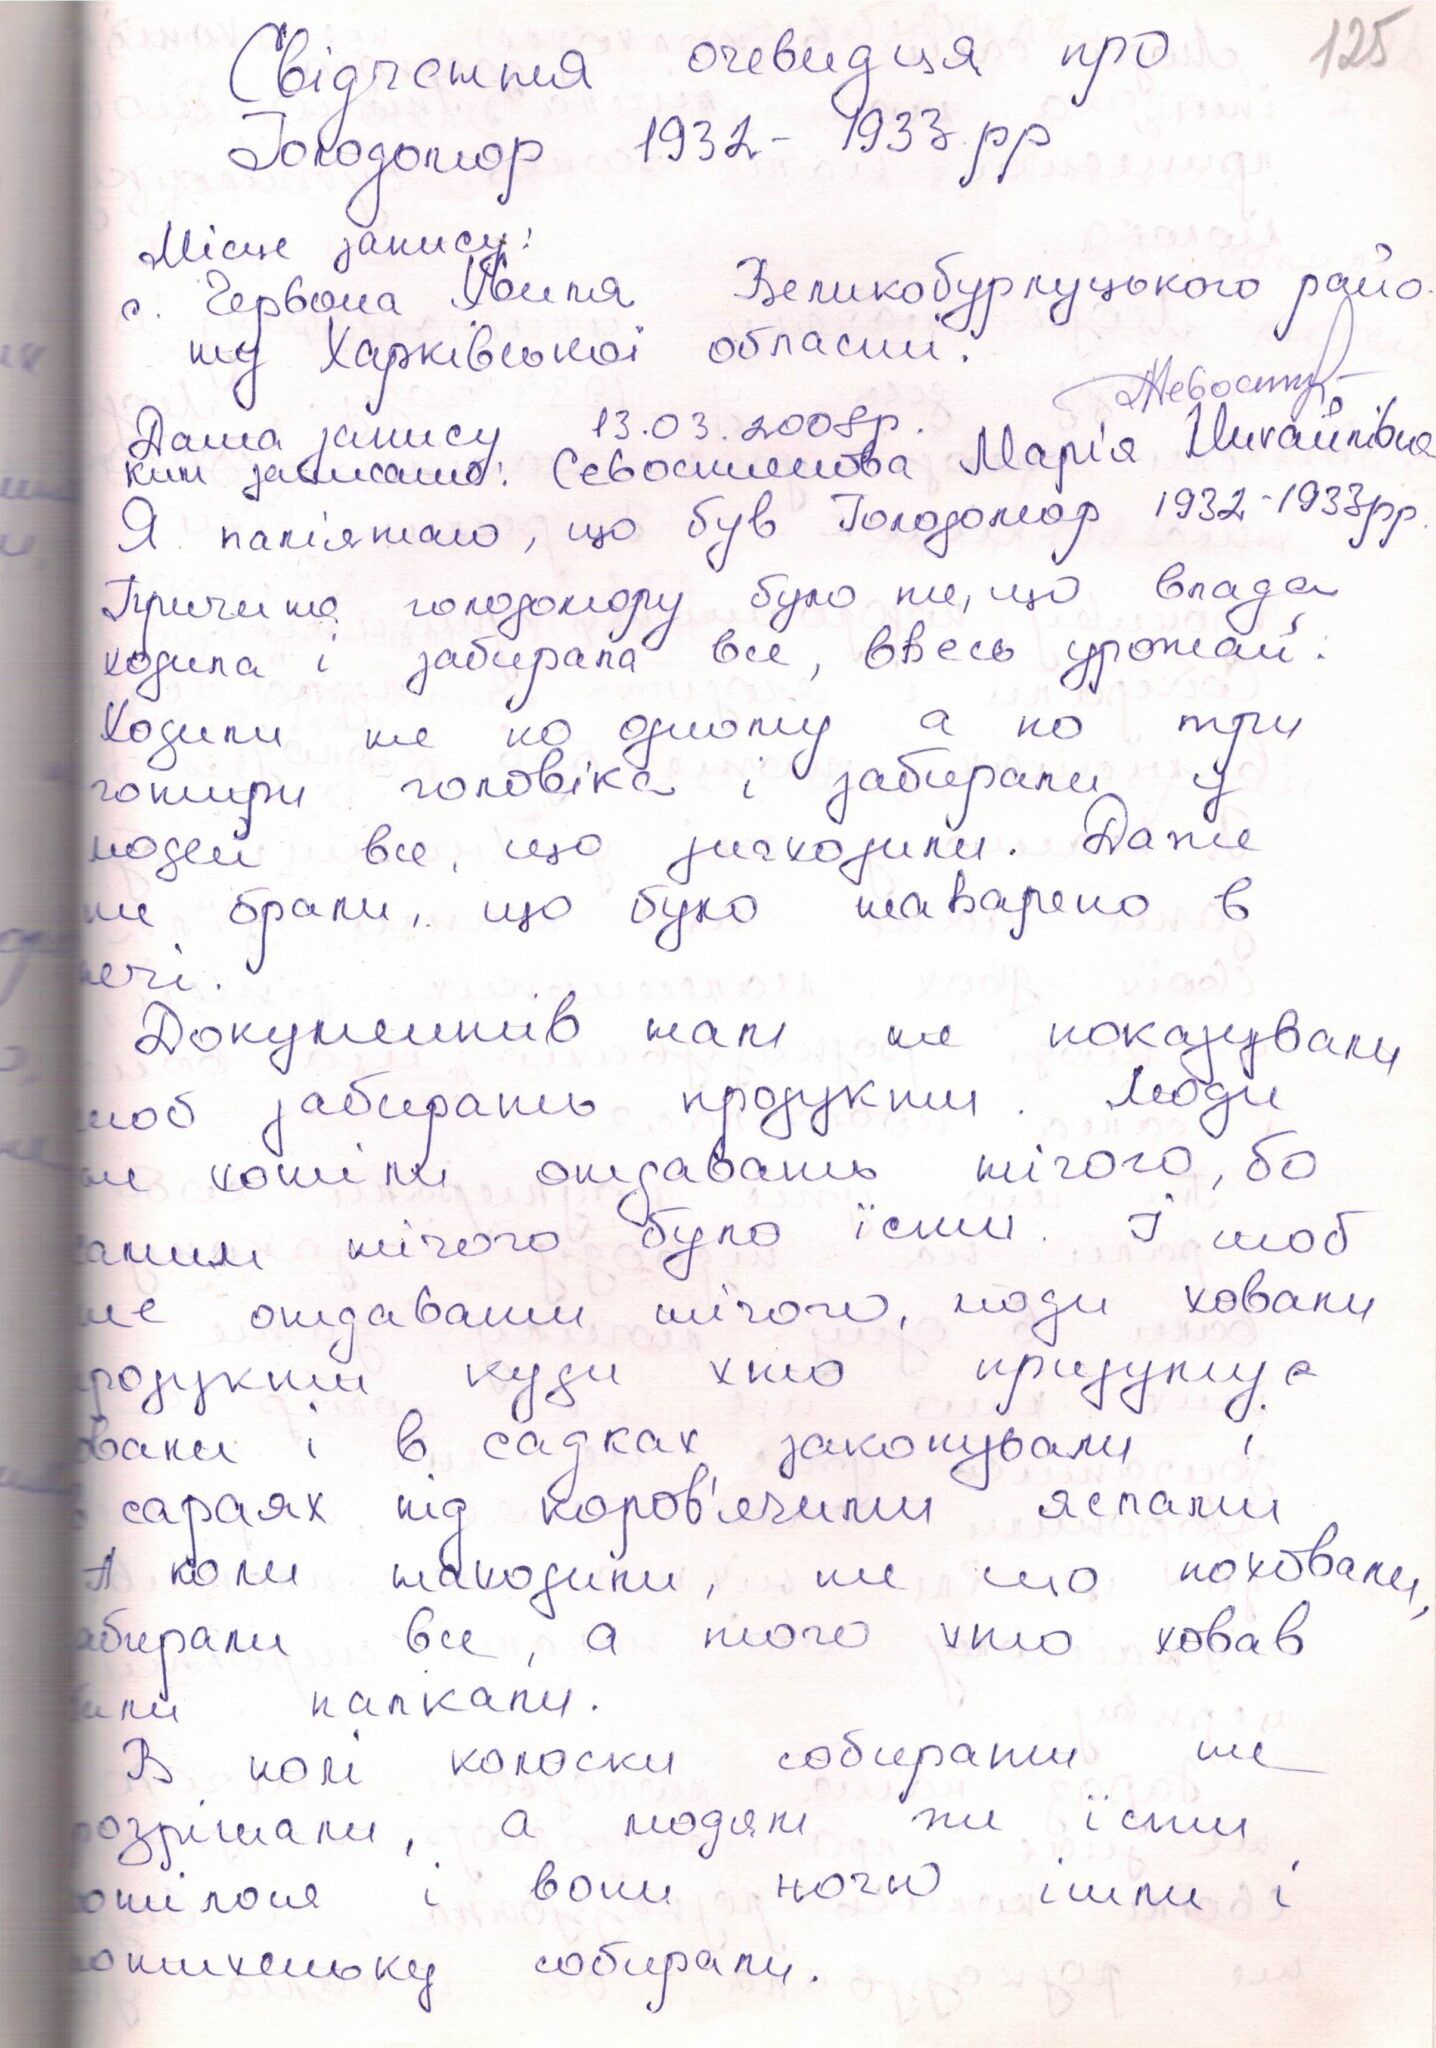 125
Свідчення очевидця про
Голодомор 1932-1933 рр
Місце запису:
с. Червона Хвиля Великобурлуцького райо-
ну Харківської області.
Дата запису 13.03.2008р.
ким записано: Севостянова Марія Михайлівна
Я пам'ятаю, що був Голодомор 1932-1933рр.
Причина голодомору було те, що влада
ходила і забирала все, ввесь урожай.
Ходили не по одному а по три
чотири чоловіка і забирали у
людей все, що знаходили. Даже
те брали, що було наварено в
печі.
Документів нам не показували
шоб забирать продукти. Люди
не хотіли отдавать нічого, бо
самим нічого було їсти. І шоб
не отдавати нічого, люди ховали
продукти куди хто придумує
ховали і в садках закопували і
в сараях під коров'ячими яслами
А коли находили, те шо поховали,
забирали все, а того хто ховав
били палками.
В полі колоски собирати не
розрішали, а людям же їсти
хотілося і вони ночю ішли і
потихеньку собирали.